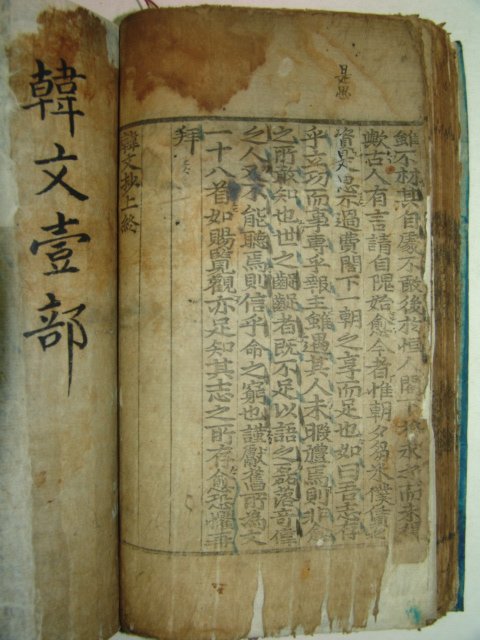 雖不材其自處不敢後於恒人閤下將求之而未得
歟古人有言請自隗始愈今者惟朝夕芻米僕賃
資是急不過費閤下一朝之享而足也如曰吾志存
乎立功而事專乎報主雖遇其人未暇禮焉則非
之所敢知也世之齪齪者既不足以語之磊落奇偉
之人又不能聽焉則信乎命之窮也謹獻舊所為文
一十八首如賜覽觀亦足知其志之所存愈恐懼再
拜
韓文抄上終
韓文壹部